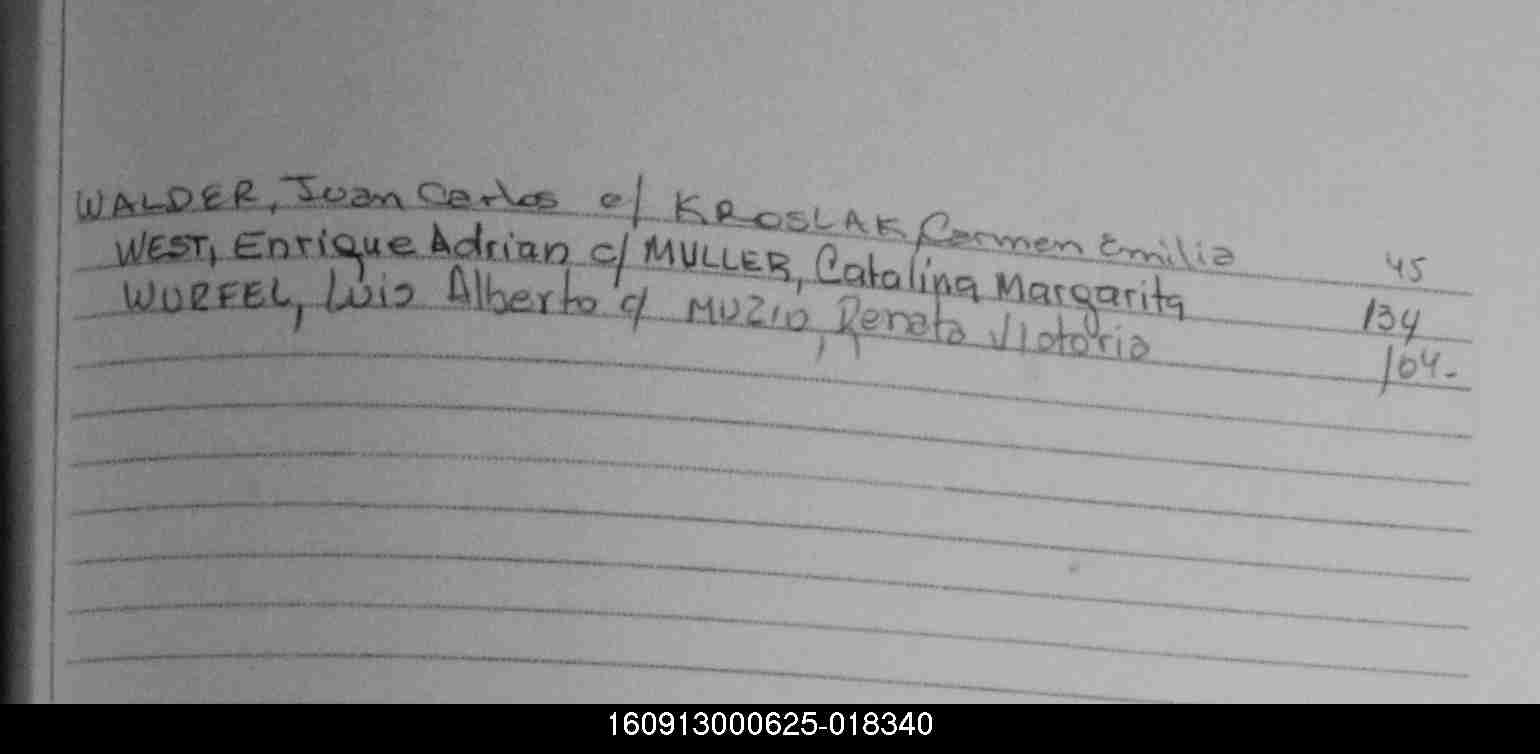 WALDER, Juan Carlos c/ KROSLAK, Carmen Emilia 45
WEST, Enrique Adrian c/ MULLER, Catalina Margarita 134
WURFEL, Luis Alberto c/ MUZIO, Renata Victoria 104-
160913000625-018340